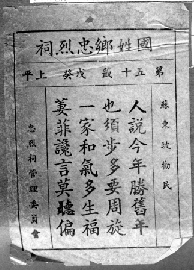 國姓鄉忠烈祠
第五十籤 戊癸 上平
蘇東坡勸民
人說今年勝舊年
也須步多要周旋
一家和氣多生福
萋菲讒言莫聽偏
忠烈祠管理委員會